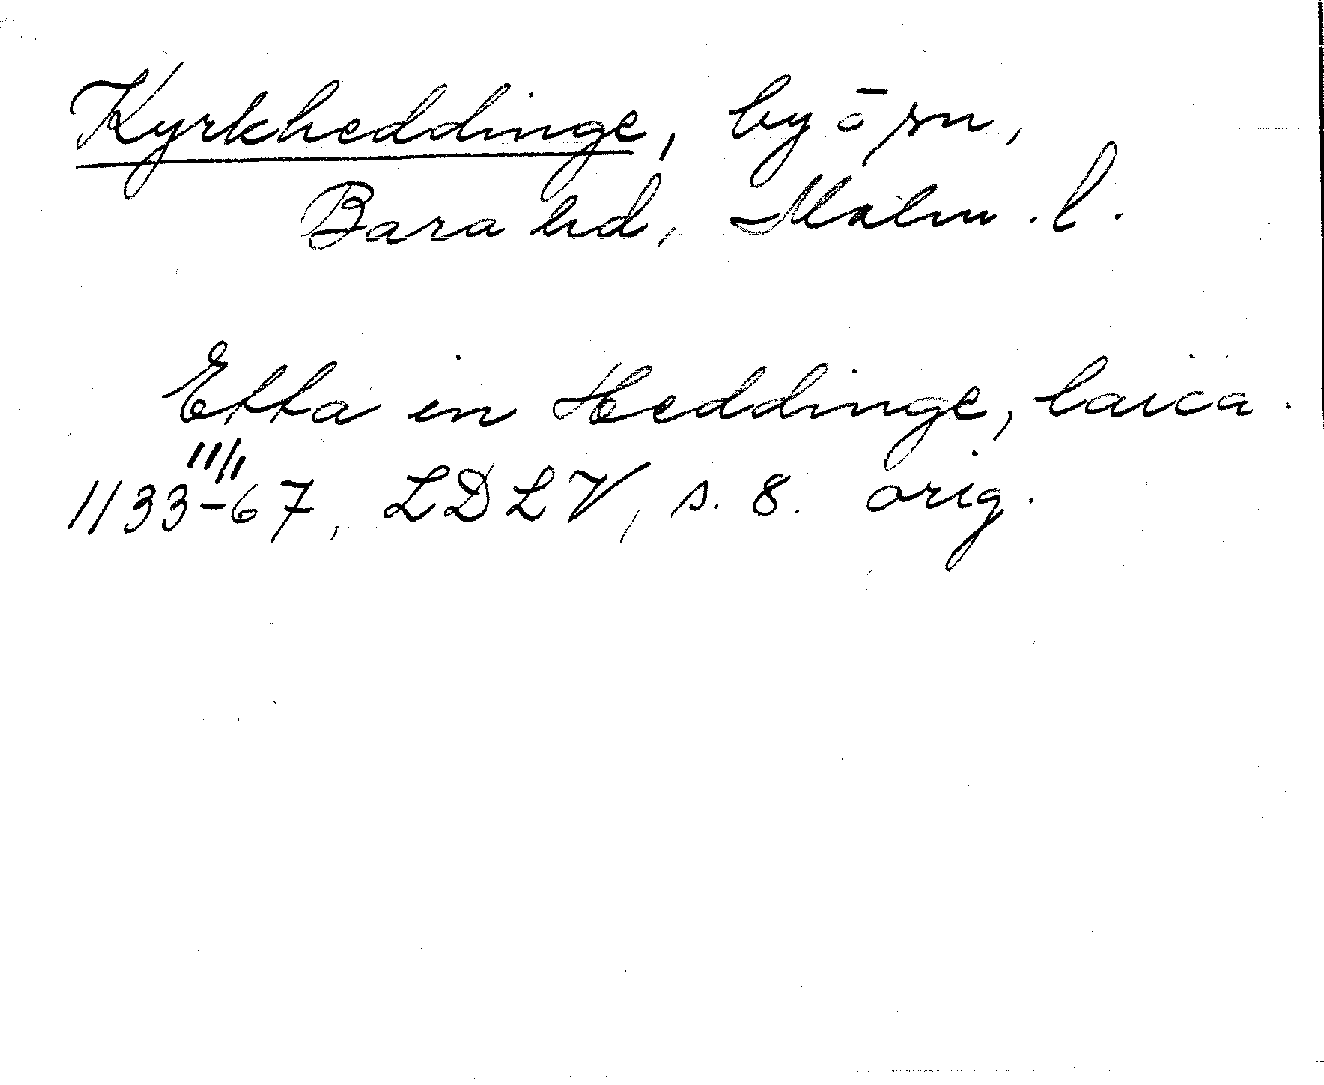 Kyrkheddinge, by ō sn,
Bara hd, Malm. l.
Etta in Heddinge, laica.
11/11
1133-67, LDLV, s. 8. orig.